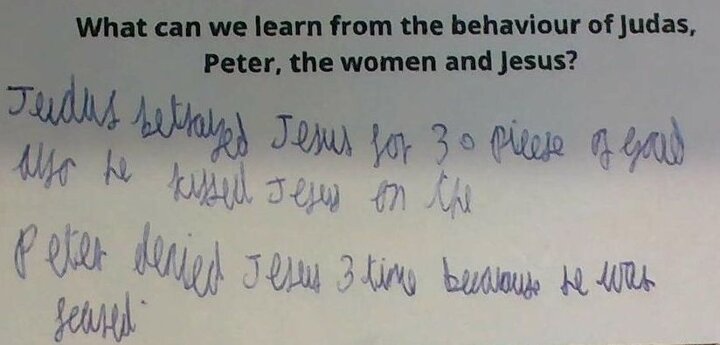 What can we learn from the behaviour of Judas,
Peter, the women and Jesus?
Judus betrayed Jesus for 30 pieese of goud
also he kissed Jesus on the
Peter denied Jesus 3 time becaouse he was
scared.